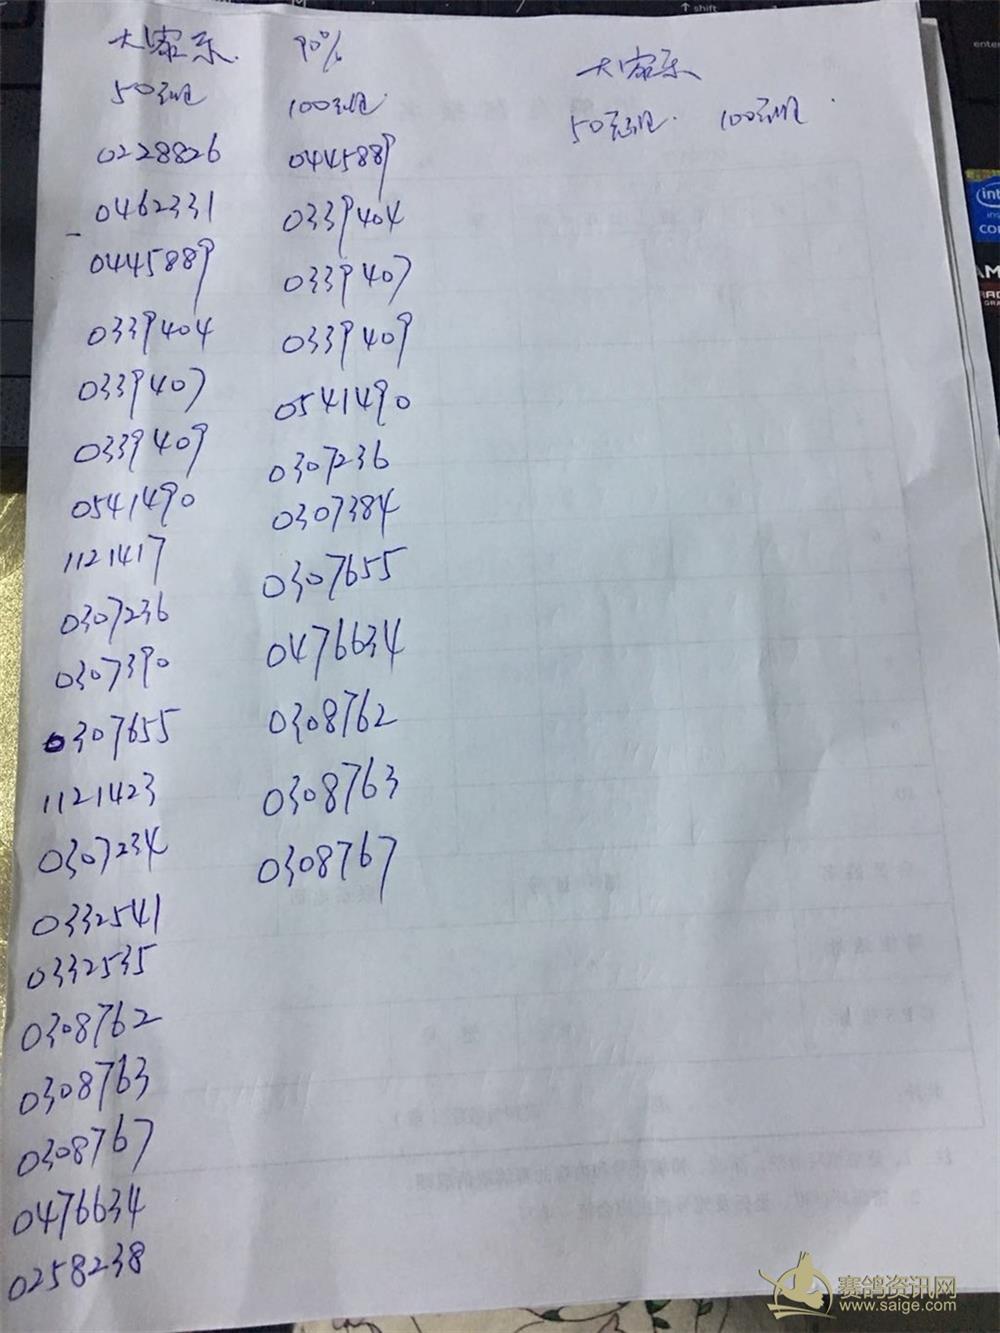 大家乐 90% 大家乐
50元组 100元组 50元组 100元组
0228826 0445889
0462331 0339404
0445889 0339407
0339404 0339409
0339407 0541490
0339409 0307236
0541490 0307384
1121417 0307655
0307236 0476634
0307390 0308762
0307655 0308763
1121423 0308767
0307234
0332541
0332535
0308762
0308763
0308767
0476634
0258238
↑ shift
enter
intel
赛鸽资讯网
www.saige.com